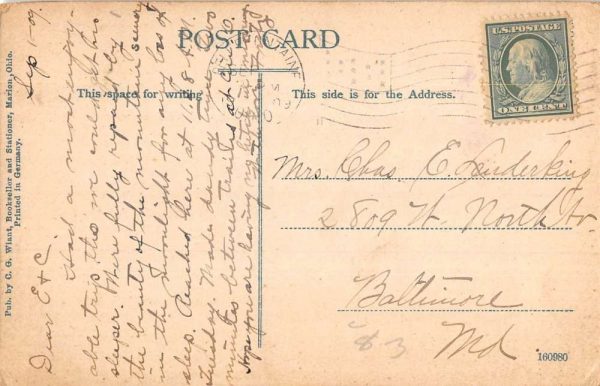 POST CARD
This space for writing
This side is for the Address.
U.S. POSTAGE
ONE CENT
Pub. by C. G. Wiant, Bookseller and Stationer, Marion, Ohio.
Printed in Germany.
Sep 1-09.
Dear E & C.
Had a most enjoy-
able trip, tho we could get no
sleeper. Were fully repaid by
the beauty of the mountain scenery
in the moonlight for any loss of
sleep. Reached here at 11.18 A.M.
Tuesday. Made dandy time, two
minutes between trains at
Hope you are having
Mrs. Chas. E. Linderking
2809 W. North Av.
Baltimore
Md
83
160980